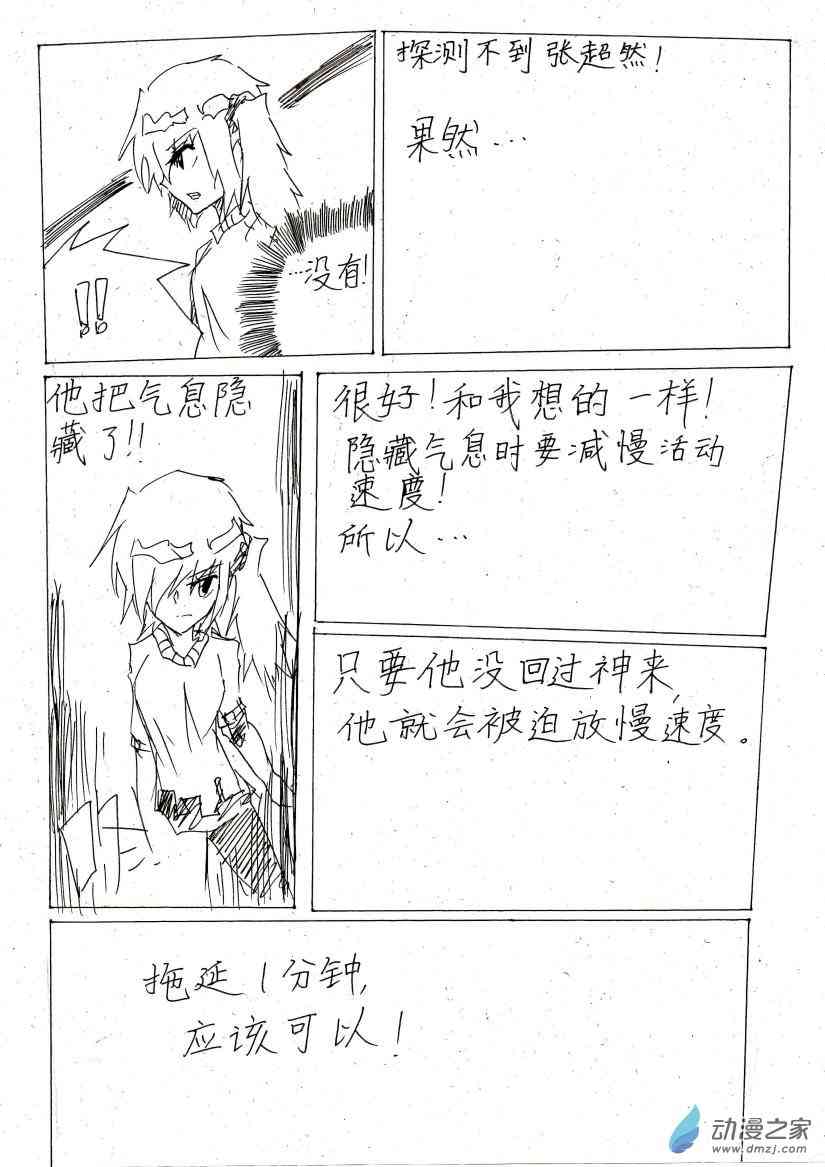 !!
…没有!
探测不到张超然!
果然…
他把气息隐
藏了!!
很好!和我想的一样!
隐藏气息时要减慢活动
速度!
所以…
只要他没回过神来,
他就会被迫放慢速度。
拖延1分钟,
应该可以!
动漫之家
www.dmzj.com